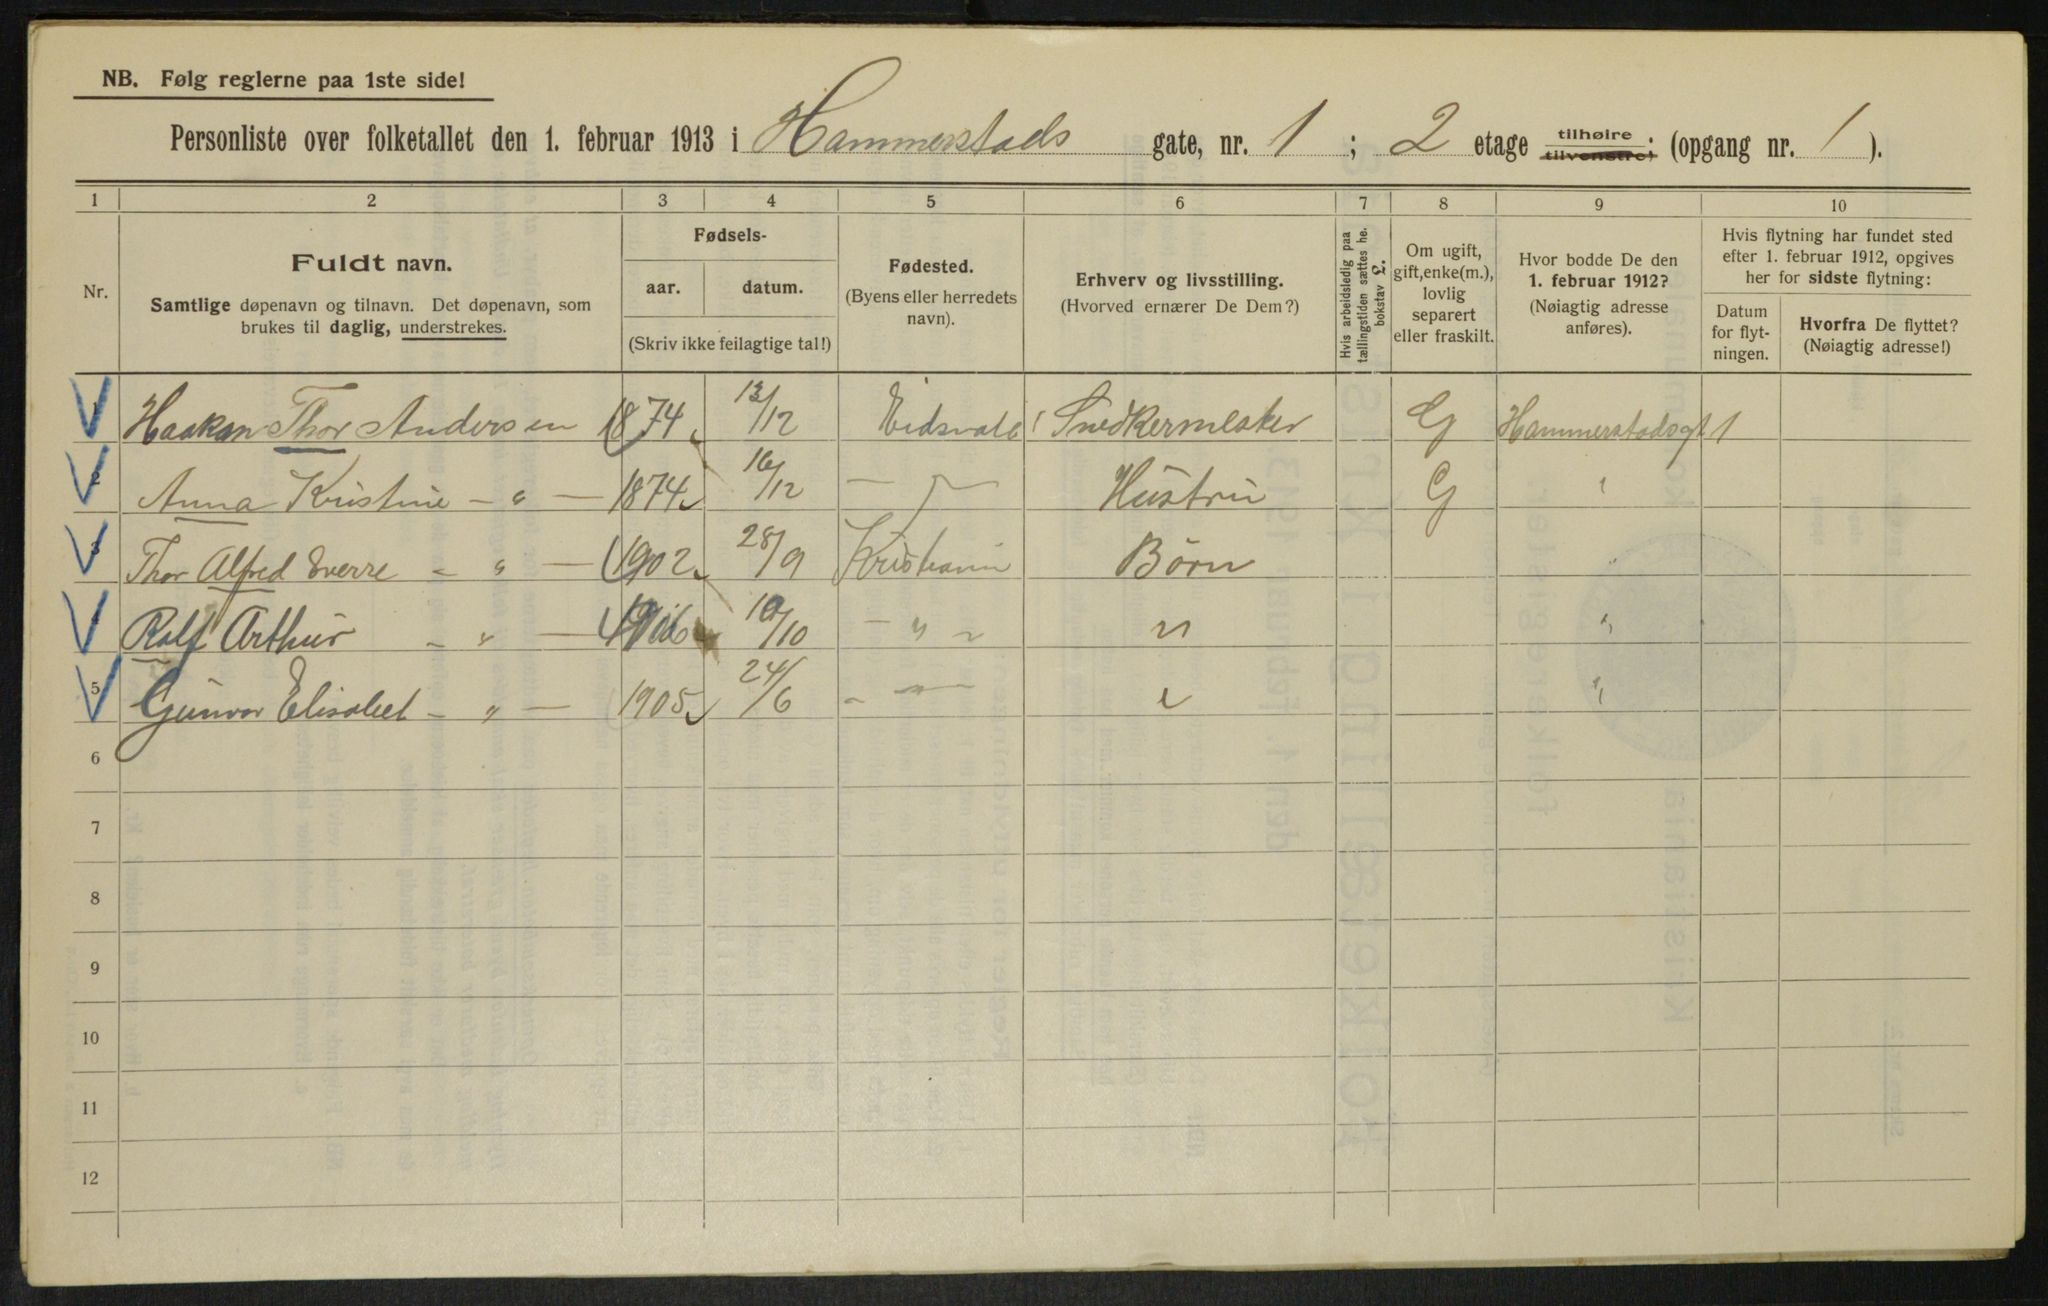 NB. Følg reglerne paa 1ste side!
Personliste over folketallet den 1. februar 1913 i Hammerstads gate, nr. 1 ; 2 etage tilhøire tilvenstre; (opgang nr. 1 ).
1 2 3 4 5 6 7 8 9 10
Nr.
Fuldt navn.
Samtlige døpenavn og tilnavn. Det døpenavn, som
brukes til daglig, understrekes.
Fødsels-
aar. datum.
(Skriv ikke feilagtige tal!)
Fødested.
(Byens eller herredets
navn).
Erhverv og livsstilling.
(Hvorved ernærer De Dem?)
Hvis arbeidsledig paa
tællingstiden sættes he.
bokstav L.
Om ugift,
gift, enke(m.),
lovlig
separert
eller fraskilt.
Hvor bodde De den
1. februar 1912?
(Nøiagtig adresse
anføres).
Hvis flytning har fundet sted
efter 1. februar 1912, opgives
her for sidste flytning:
Datum
for flyt-
ningen.
Hvorfra De flyttet?
(Nøiagtig adresse!)
1 Haakon Thor Andersen 1874 13/12 Eidsvold Snedkermester G Hammerstadsgt 1
2 Anna Kristine - " - 1874 16/12 - " - Hustru G "
3 Thor Alfred Sverre - " - 1902 28/9 Kristiania Børn "
4 Rolf Arthur - " - 10/10 - " - " "
5 Gunvor Elisabet - " - 1905 24/6 - " - " "
6
7
8
9
10
11
12